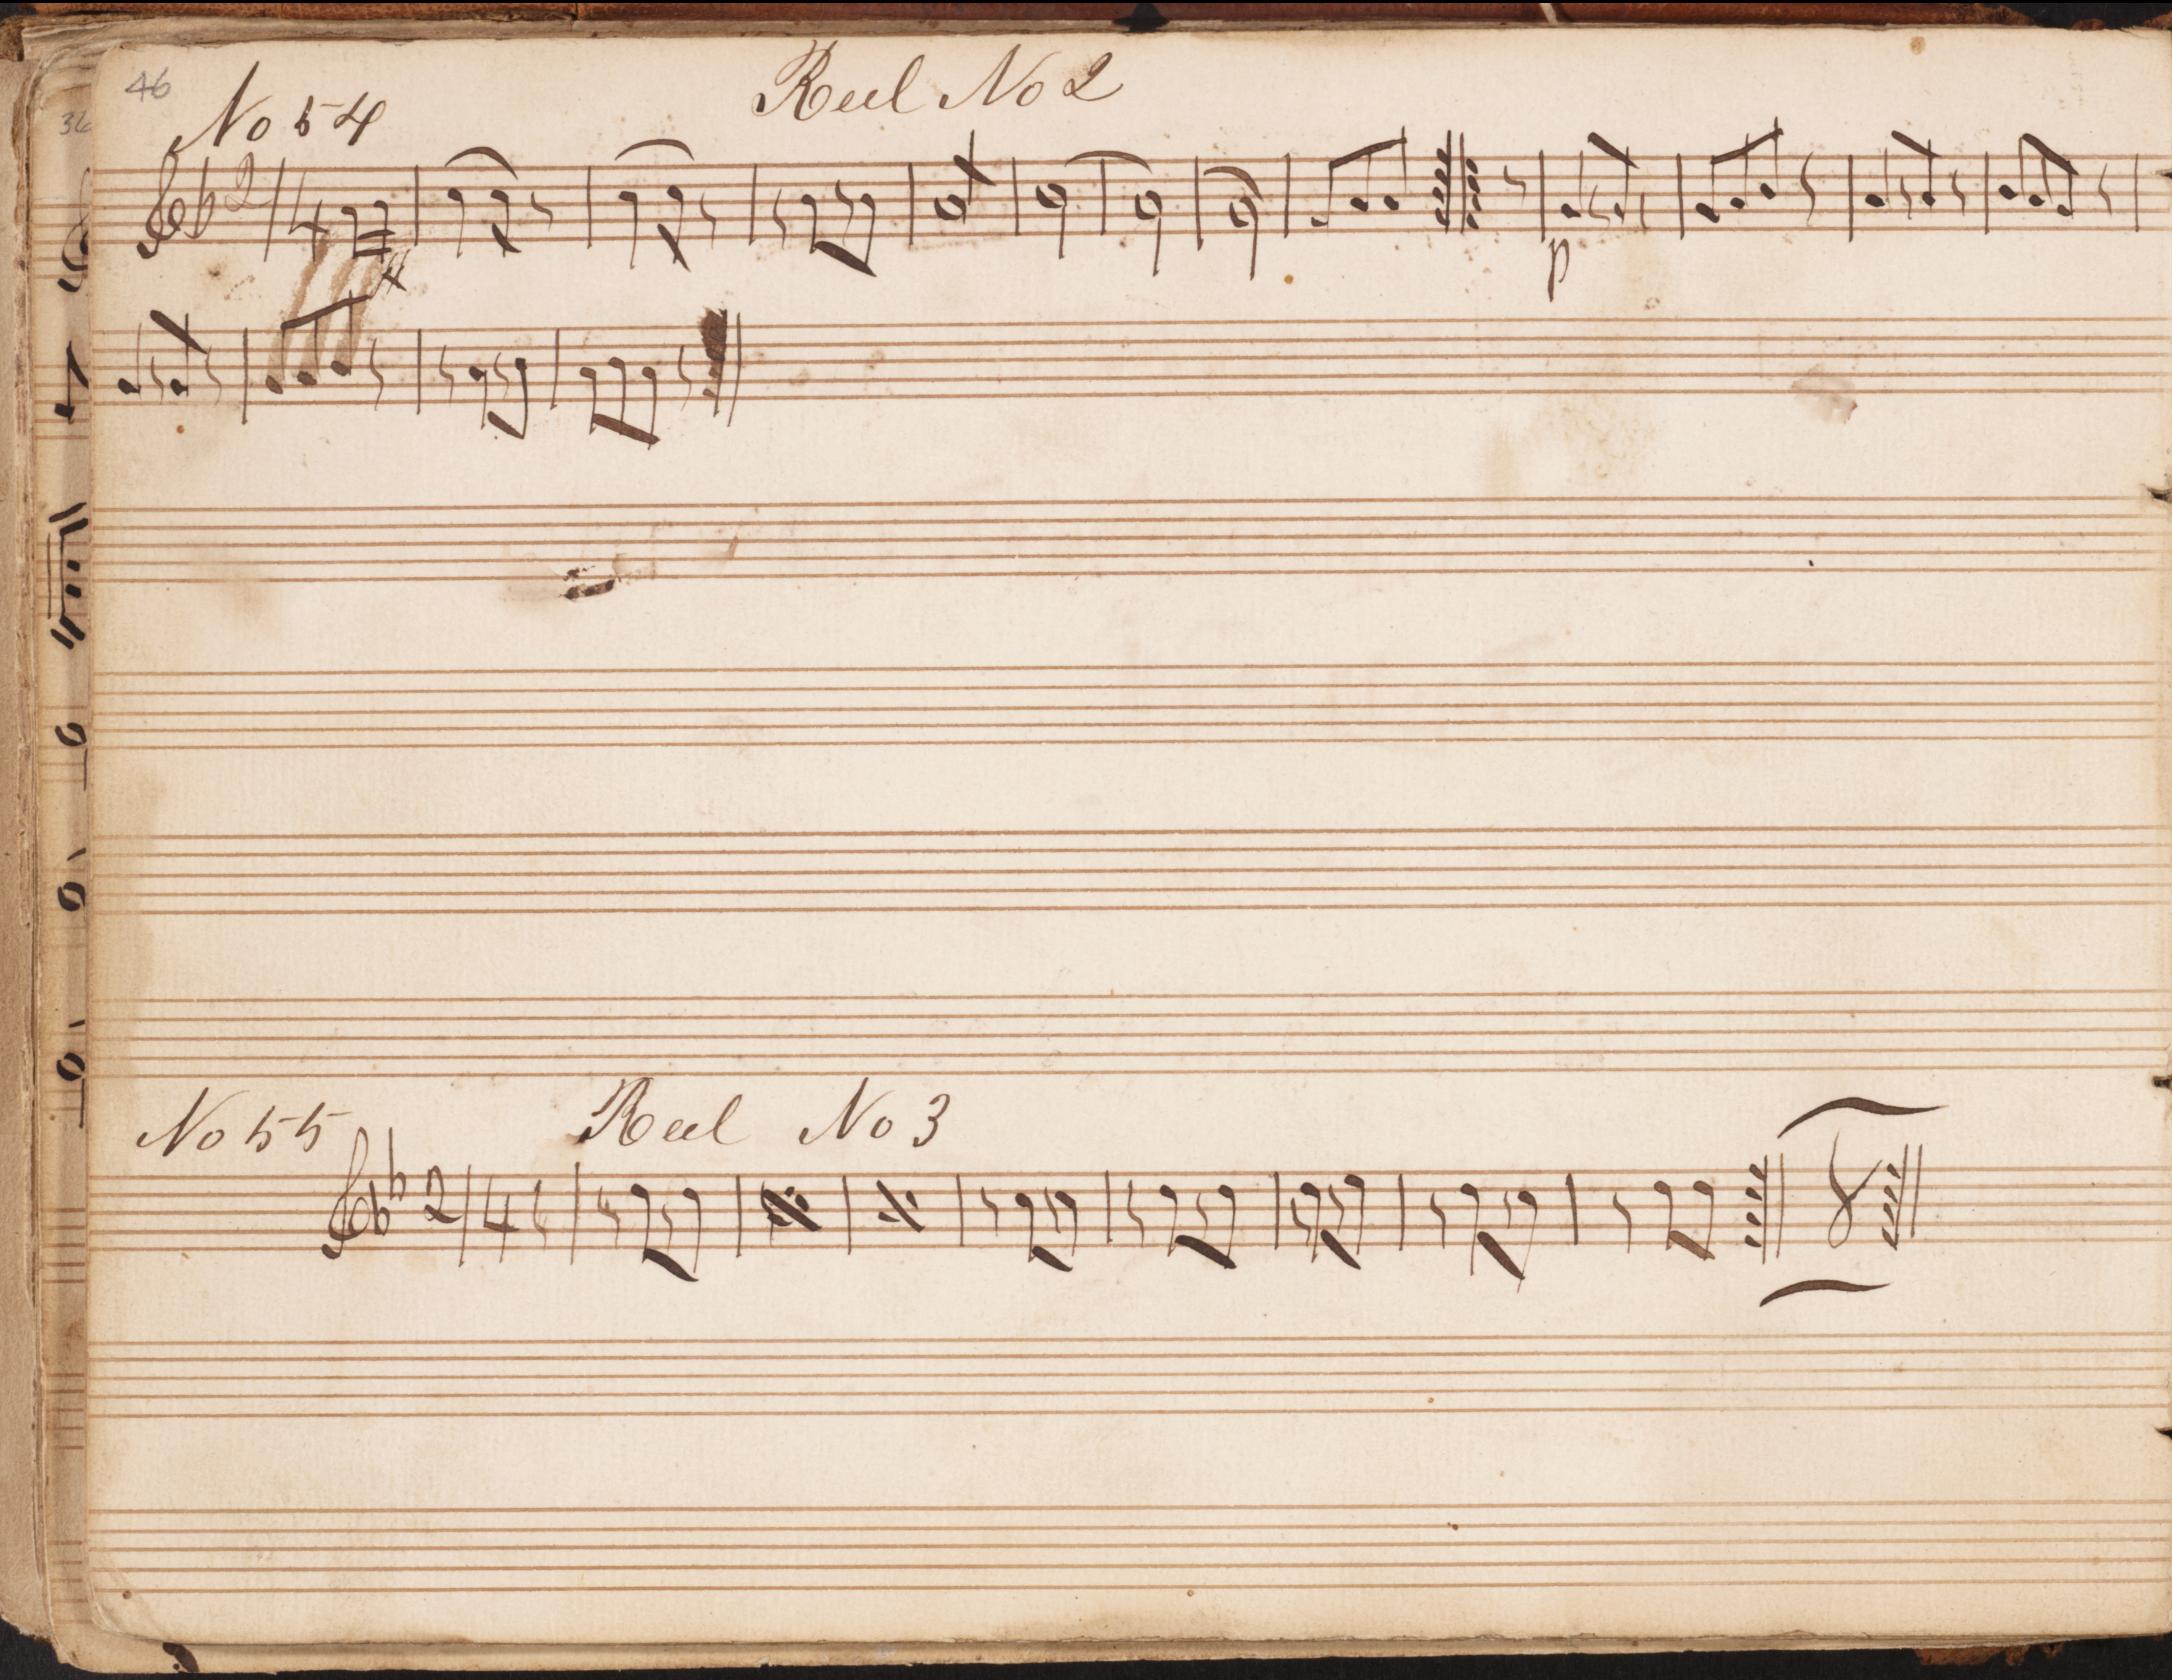 46
36
No 54 Reel No 2
2/4
p
No 55 Reel No 3
2/4